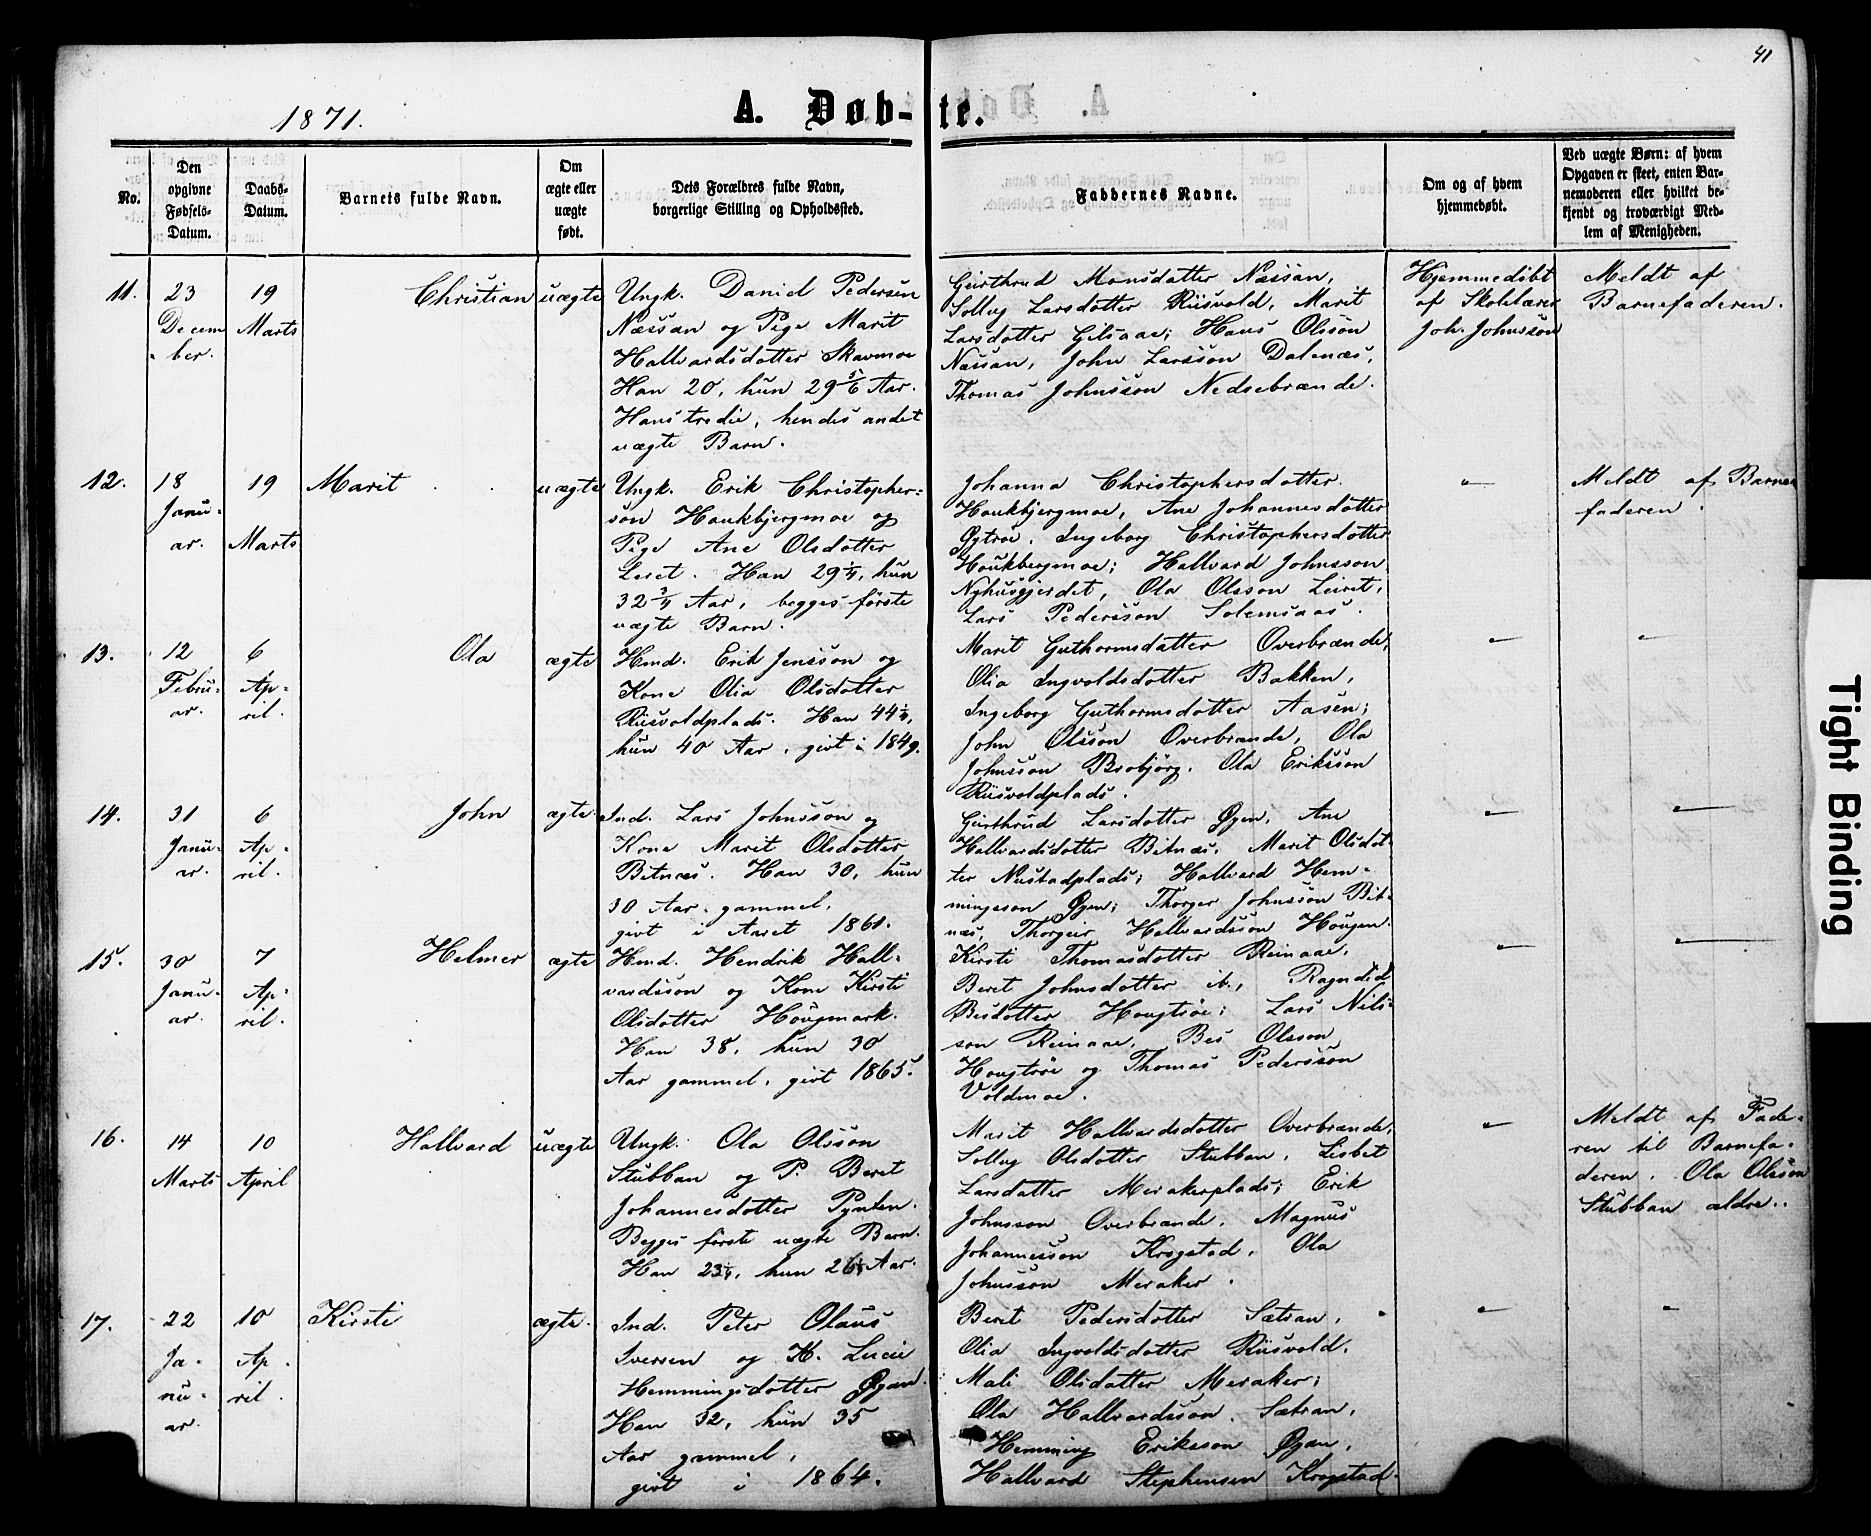 41
1871.
A. Døb-te.
No.
Den opgivne Fødsels-Datum.
Daabs-Datum.
Barnets fulde Navn.
Om ægte eller uægte født.
Dets Forældres fulde Navn, borgerlige Stilling og Opholdssted.
Faddernes Navne.
Om og af hvem hjemmedøbt.
Ved uægte Børn: af hvem Opgaven er skeet, enten Barnemoderen eller hvilket bekjendt og troværdigt Medlem af Menigheden.
11.
23
Decem
ber.
19
Marts
Christian
uægte
Ungk. Daniel Pedersen
Næssan og Pige Marit
Hallvardsdotter Skavmoe
Han 20, hun 29 5/6 Aar.
Hans tredie, hendes andet
uægte Barn.
Gurthrud Monsdotter Næssan,
Sollug Larsdotter Riisvold, Marit
Larsdotter Gilsaae; Hans Olsson
Næssan, John Larsson Dalenæs,
Thomas Johnsson Nedrebrænde.
Hjemmedøbt
af Skolelærer
Joh. Johnsson
Meldt af
Barnefaderen.
12.
18
Janu-
ar.
19
Marts
Marit
uægte
Ungk. Erik Christopher=
son Houkbjergmoe og
Pige Ane Olsdotter
Leret. Han 29 1/4, hun
32 3/4 Aar, begges første
uægte Barn.
Johanna Christophersdotter
Houkbjergmoe, Ane Johannesdotter
Gytrøe, Ingeborg Christophersdotter
Houkbergmoe; Hallvard Johnsson
Nyhusgjerdet, Ola Olsson Leiret,
Lars Pedersson Solemsaas.
Meldt af Barne
faderen.
13.
12
Febru-
ar.
6
Ap-
ril.
Ola
ægte
Hmd. Erik Jensson og
Kone Olia Olsdotter
Riisvoldplads. Han 44 1/4,
hun 40 Aar, givt i 1849.
Marit Guthormsdotter Overbrænde,
Olia Ingvoldsdotter Bakken,
Ingeborg Guthormsdotter Aasen;
John Olsson Overbrænde, Ola
Johnsson Brobjörg, Ola Eriksson
Riisvoldplads.
14.
31
Janu-
ar.
6
Ap-
ril.
John
ægte
Ind. Lars Johnsson og
Kone Marit Olsdotter
Bitnæs. Han 30, hun
30 Aar gammel,
givt i Aaret 1861.
Gurthrud Larsdotter Øyen, Ane
Hallvardsdotter Bitnæs, Marit Olsdot-
ter Nustadplads; Hallvard Hem-
mingsson Øyen; Thorger Johnsson Bit-
næs, Thorgeir Hallvardsson Hougen.
15.
30
Janu-
ar.
7
Ap-
ril.
Helmer
ægte
Hmd. Hendrik Hall-
vardsson og Kone Kirsti
Olsdotter Hougmark.
Han 38, hun 30
Aar gammel, givt 1865.
Kirsti Thomasdotter Reinaae,
Beret Johnsdotter ib., Ragndid
Besdotter Hougtröe; Lars Nils-
son Reinaae, Bes Olsson
Hougtröe og Thomas Pedersson
Voldmoe.
16.
14
Marts
10
April
Hallvard
uægte
Ungk. Ola Olsson
Stubban og P. Beret
Johannesdotter Pynten.
Begges første uægte Barn.
Han 23 1/4, hun 26 1/4 Aar.
Marit Hallvardsdotter Overbrænde,
Sollug Olsdotter Stubban, Lisbet
Larsdatter Merakerplads; Erik
Johnsson Overbrænde, Magnus
Johannesson Krogstad, Ola
Johnsson Meraker.
Meldt af Fade-
ren til Barnefa-
deren, Ola Olsson
Stubban ældre.
17.
22
Ja-
nu-
ar.
10
Ap-
ril.
Kirsti
ægte.
Ind. Peter Olaus
Iversen og K. Lucie
Hemmingsdotter Øyan.
Han 32, hun 35
Aar gammel,
givt i 1864.
Beret Pedersdotter Sætran,
Olia Ingvoldsdotter Riisvold,
Mali Olsdatter Meraker;
Ola Hallvardsson Sætran,
Hemming Eriksson Øyan,
Hallvard Stephensen Krogstad.
Tight Binding